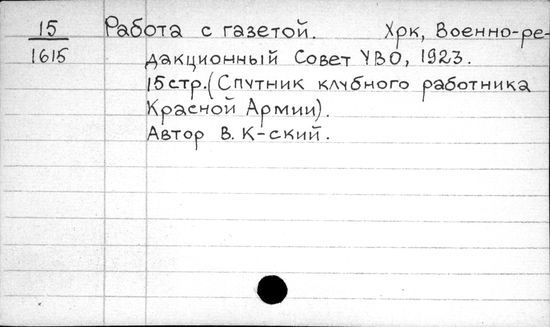 15 Работа с газетой. Хрк, Военно-ре-
1615 дакционный Совет УВО, 1923.
15стр.(Спутник клубного работника
Красной Армии).
Автор В. К-ский.